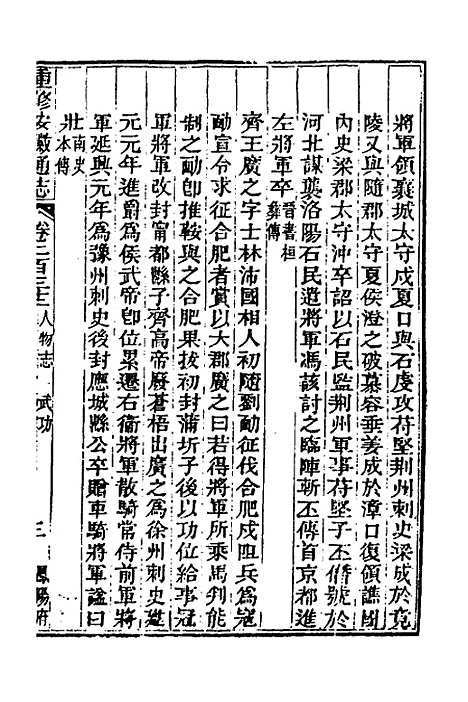 將軍領襄城太守戍夏口與石虔攻苻堅荆州刺史梁成於竟
陵又與隨郡太守夏侯澄之破慕容垂姜成於漳口復領譙國
內史梁郡太守沖卒詔以石民監荆州軍事苻堅子丕僭號於
河北謀襲洛陽石民遣將軍馮該討之臨陣斬丕傳首京都進
左將軍卒晉書桓彝傳
齊王廣之字士林沛國相人初隨劉勔征伐合肥戍
勔宣令求征合肥者賞以大郡廣之曰若得將軍所乘馬判能
制之勔卽推鞍與之合肥果拔初封蒲圻子後以功位給事冠
軍將軍改封甯都縣子齊高帝廢蒼梧出廣之為徐州刺史建
元元年進爵爲侯武帝卽位累遷右衞將軍散騎常侍前軍將
軍延興元年爲豫州刺史後封應城縣公卒贈車騎將軍謚曰
壯南史本傳
重修安徽通志 卷二百三十三 人物志 武功 三 鳳陽府